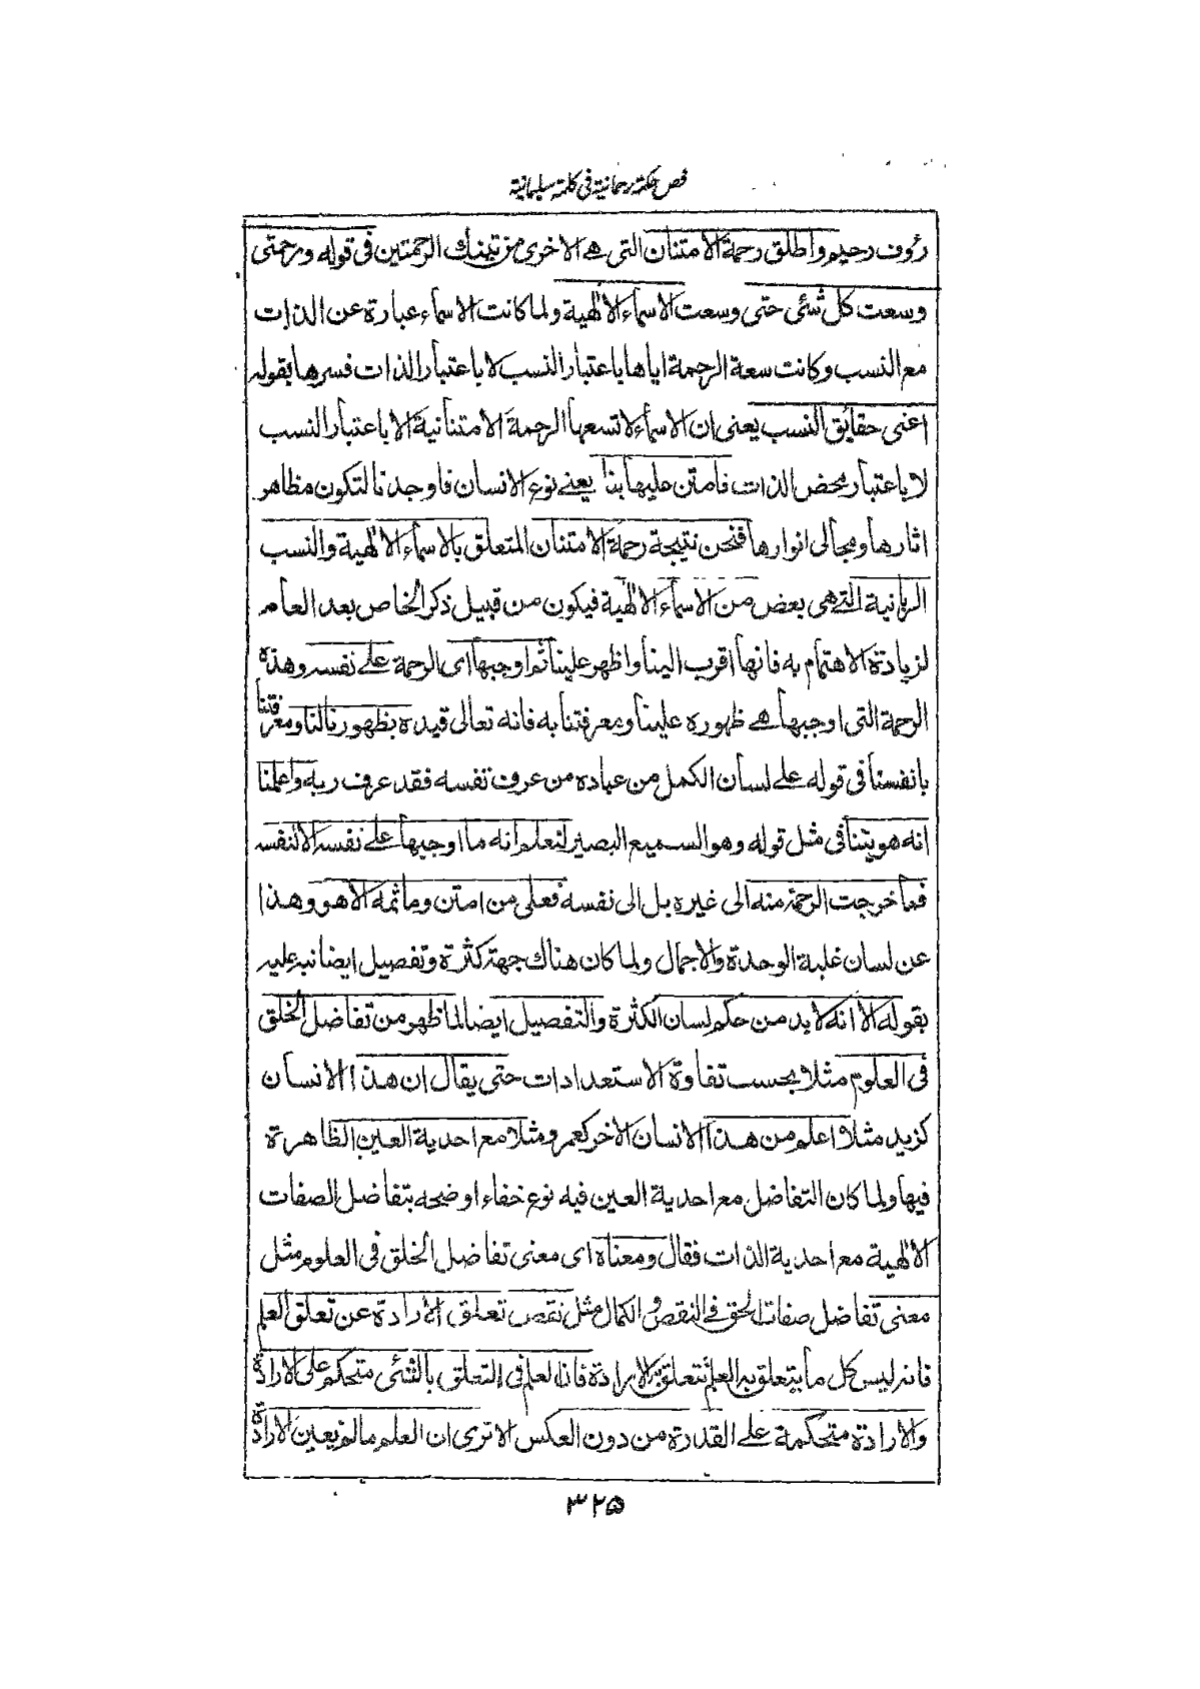 فص حكمة رحمانية في كلمة سليمانية
رؤف رحيم واطلق رحمة الامتنان التي هي الاخرى من تينك الرحمتين في قوله ورحمتي
وسعت كل شئي حتى وسعت الاسماء الالٰهية ولما كانت الاسماء عبارة عن الذات
مع النسب وكانت سعة الرحمة اياها باعتبار النسب لا باعتبار الذات فسرها بقوله
اعني حقايق النسب يعني ان الاسماء لا تسعها الرحمة الامتنانية الا باعتبار النسب
لا باعتبار محض الذات فامتن عليها بنا يعني نوع الانسان فاوجدنا لتكون مظاهر
اثارها ومجالى انوارها فنحن نتيجة رحمة الامتنان المتعلق بالاسماء الالٰهية والنسب
الربانية التي هي بعض من الاسماء الالٰهية فيكون من قبيل ذكر الخاص بعد العام
لزيادة الاهتمام به فانها اقرب الينا واظهر علينا ثم اوجبها اى الرحمة على نفسه وهذه
الرحمة التي اوجبها هي ظهوره علينا ومعرفتنا به فانه تعالى قيده بظهورنا لنا ومعرفتنا
بانفسنا في قوله على لسان الكمل من عباده من عرف نفسه فقد عرف ربه واعلمنا
انه هويتنا في مثل قوله وهو السميع البصير لنعلم انه ما اوجبها على نفسه الا لنفسه
فما خرجت الرحمة منه الى غيره بل الى نفسه فعلى من امتن وما ثمه الا هو وهذا
عن لسان غلبة الوحدة والاجمال ولما كان هناك جهة كثرة وتفصيل ايضا نبه عليه
بقوله الا انه لا بد من حكم لسان الكثرة والتفصيل ايضا لما ظهر من تفاضل الخلق
في العلوم مثلا بحسب تفاوة الاستعدادات حتى يقال ان هذا الانسان
كزيد مثلا اعلم من هذا الانسان الاخر كعمرو مثلا مع احدية العين الظاهرة
فيها ولما كان التفاضل مع احدية العين فيه نوع خفاء اوضحه بتفاضل الصفات
الالٰهية مع احدية الذات فقال ومعناه اى معنى تفاضل الخلق في العلوم مثل
معنى تفاضل صفات الحق في النقص و الكمال مثل نقص تعلق الارادة عن تعلق العلم
فانه ليس كل ما يتعلق به العلم تتعلق به الارادة فان العلم في التعلق بالشئي متحكم على الارادة
والارادة متحكمة على القدرة من دون العكس الا ترى ان العلم ما لم يعين الارادة
۳۲۵